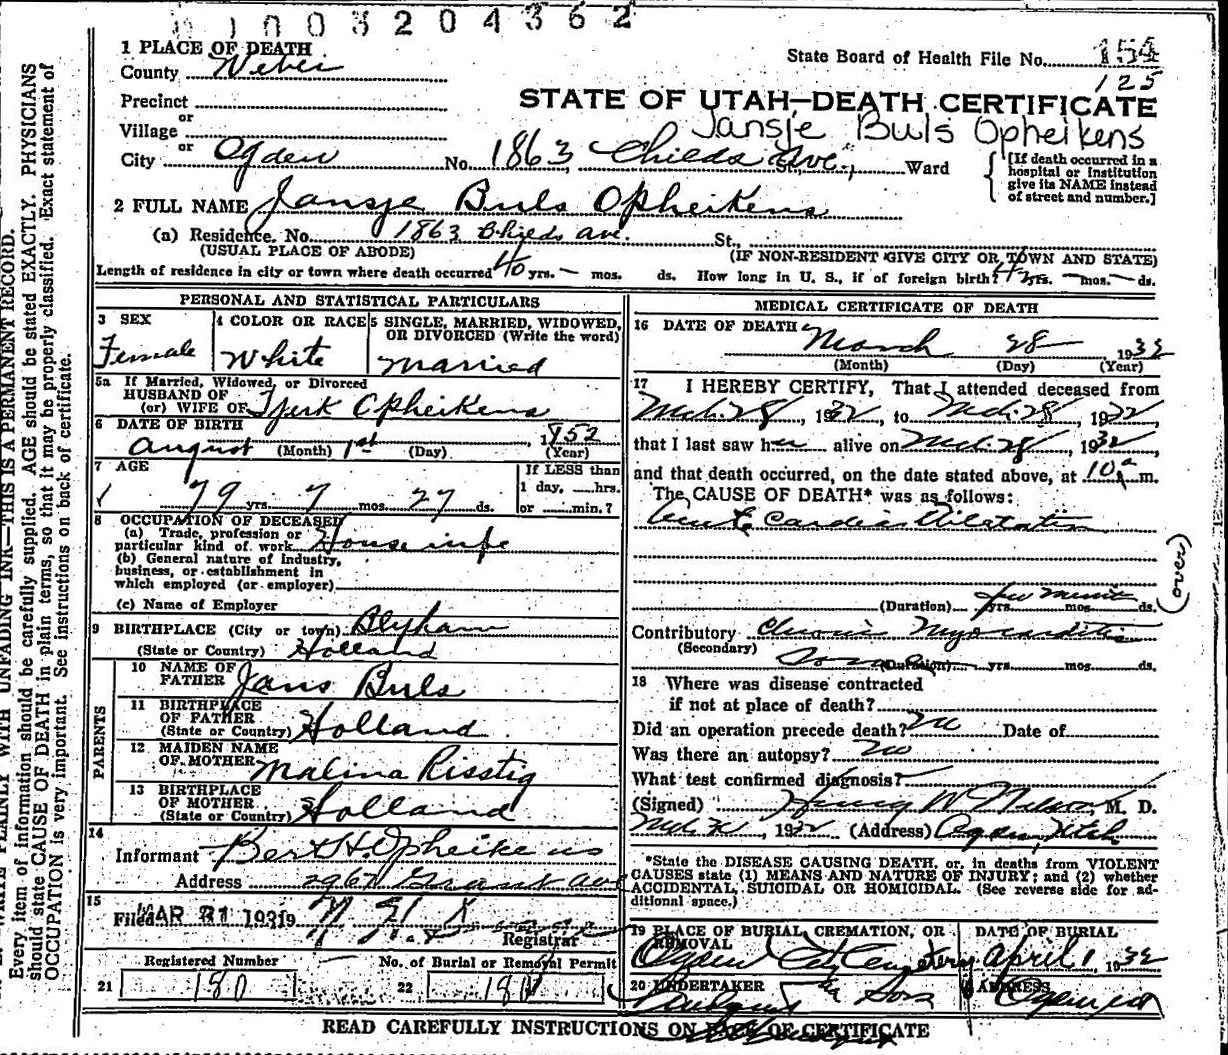 1003204362
1 PLACE OF DEATH
State Board of Health File No. 154
County Weber
125
Precinct
STATE OF UTAH—DEATH CERTIFICATE
or
Village
Jansje Buls Opheikens
or
City Ogden No. 1863 Childs Ave. St., Ward
[If death occurred in a
hospital or institution
give its NAME instead
of street and number.]
2 FULL NAME Jansje Buls Opheikens
(a) Residence. No. 1863 Childs ave. St.,
(USUAL PLACE OF ABODE) (IF NON-RESIDENT GIVE CITY OR TOWN AND STATE)
Length of residence in city or town where death occurred 40 yrs. — mos. ds. How long in U. S., if of foreign birth? yrs. — mos. — ds.
PERSONAL AND STATISTICAL PARTICULARS
3 SEX
Female
4 COLOR OR RACE
White
5 SINGLE, MARRIED, WIDOWED,
OR DIVORCED (Write the word)
Married
5a If Married, Widowed, or Divorced
HUSBAND OF
(or) WIFE OF Tjerk Opheikens
6 DATE OF BIRTH
August 1st, 1852
(Month) (Day) (Year)
7 AGE
79 yrs. 7 mos. 27 ds.
If LESS than
1 day, hrs.
or min.?
8 OCCUPATION OF DECEASED
(a) Trade, profession or
particular kind of work Housewife
(b) General nature of Industry,
business, or establishment in
which employed (or employer)
(c) Name of Employer
9 BIRTHPLACE (City or town) Blyham
(State or Country) Holland
PARENTS
10 NAME OF
FATHER Jans Buls
11 BIRTHPLACE
OF FATHER
(State or Country) Holland
12 MAIDEN NAME
OF MOTHER Malina Risstig
13 BIRTHPLACE
OF MOTHER
(State or Country) Holland
14
Informant Bert H. Opheikens
Address 2967 Grant ave
15
Filed MAR 31 1932 19
Registrar
Registered Number No. of Burial or Removal Permit
21 180 22 180
MEDICAL CERTIFICATE OF DEATH
16 DATE OF DEATH
March 28, 1932
(Month) (Day) (Year)
17 I HEREBY CERTIFY, That I attended deceased from
Mch. 28, 1932, to Mch. 28, 1932
that I last saw her alive on Mch. 28, 1932
and that death occurred, on the date stated above, at 10 a m.
The CAUSE OF DEATH* was as follows:
Acute Cardiac Dilatation
(over)
(Duration) few minutes yrs. mos. ds.
Contributory Chronic Myocarditis
(Secondary)
(Duration) yrs. mos. ds.
18 Where was disease contracted
if not at place of death?
Did an operation precede death? no Date of
Was there an autopsy? no
What test confirmed diagnosis?
(Signed) Henry W Nelson, M. D.
1932 (Address) Ogden, Utah
*State the DISEASE CAUSING DEATH, or, in deaths from VIOLENT
CAUSES state (1) MEANS AND NATURE OF INJURY; and (2) whether
ACCIDENTAL, SUICIDAL OR HOMICIDAL. (See reverse side for ad-
ditional space.)
19 PLACE OF BURIAL, CREMATION, OR
REMOVAL
Ogden City Cemetery
DATE OF BURIAL
April 1, 1932
20 UNDERTAKER
& Sons
ADDRESS
Ogden
READ CAREFULLY INSTRUCTIONS ON BACK OF CERTIFICATE
WRITE PLAINLY WITH UNFADING INK—THIS IS A PERMANENT RECORD.
Every item of information should be carefully supplied. AGE should be stated EXACTLY. PHYSICIANS
should state CAUSE OF DEATH in plain terms, so that it may be properly classified. Exact statement of
OCCUPATION is very important. See instructions on back of certificate.